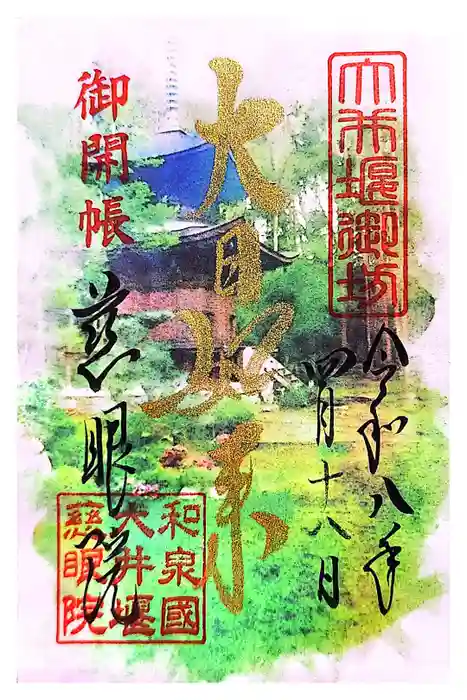 大井堰御坊
令和八年
四月十八日
大日如来
御開帳
慈眼院
和泉國
大井堰
慈眼院